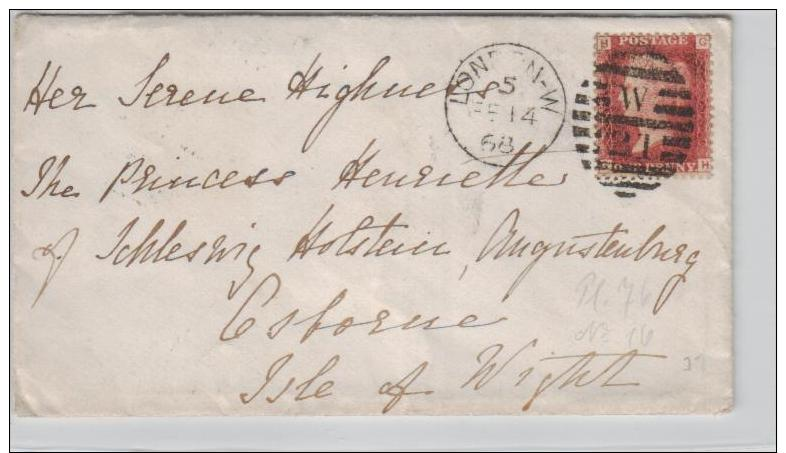 Her Serene Highness
The Princess Henriette
of Schleswig Holstein, Augustenburg
Osborne
Isle of Wight
LONDON-W
5
FE 14
68
POSTAGE
W
PENNY
Pl. 76
No 16